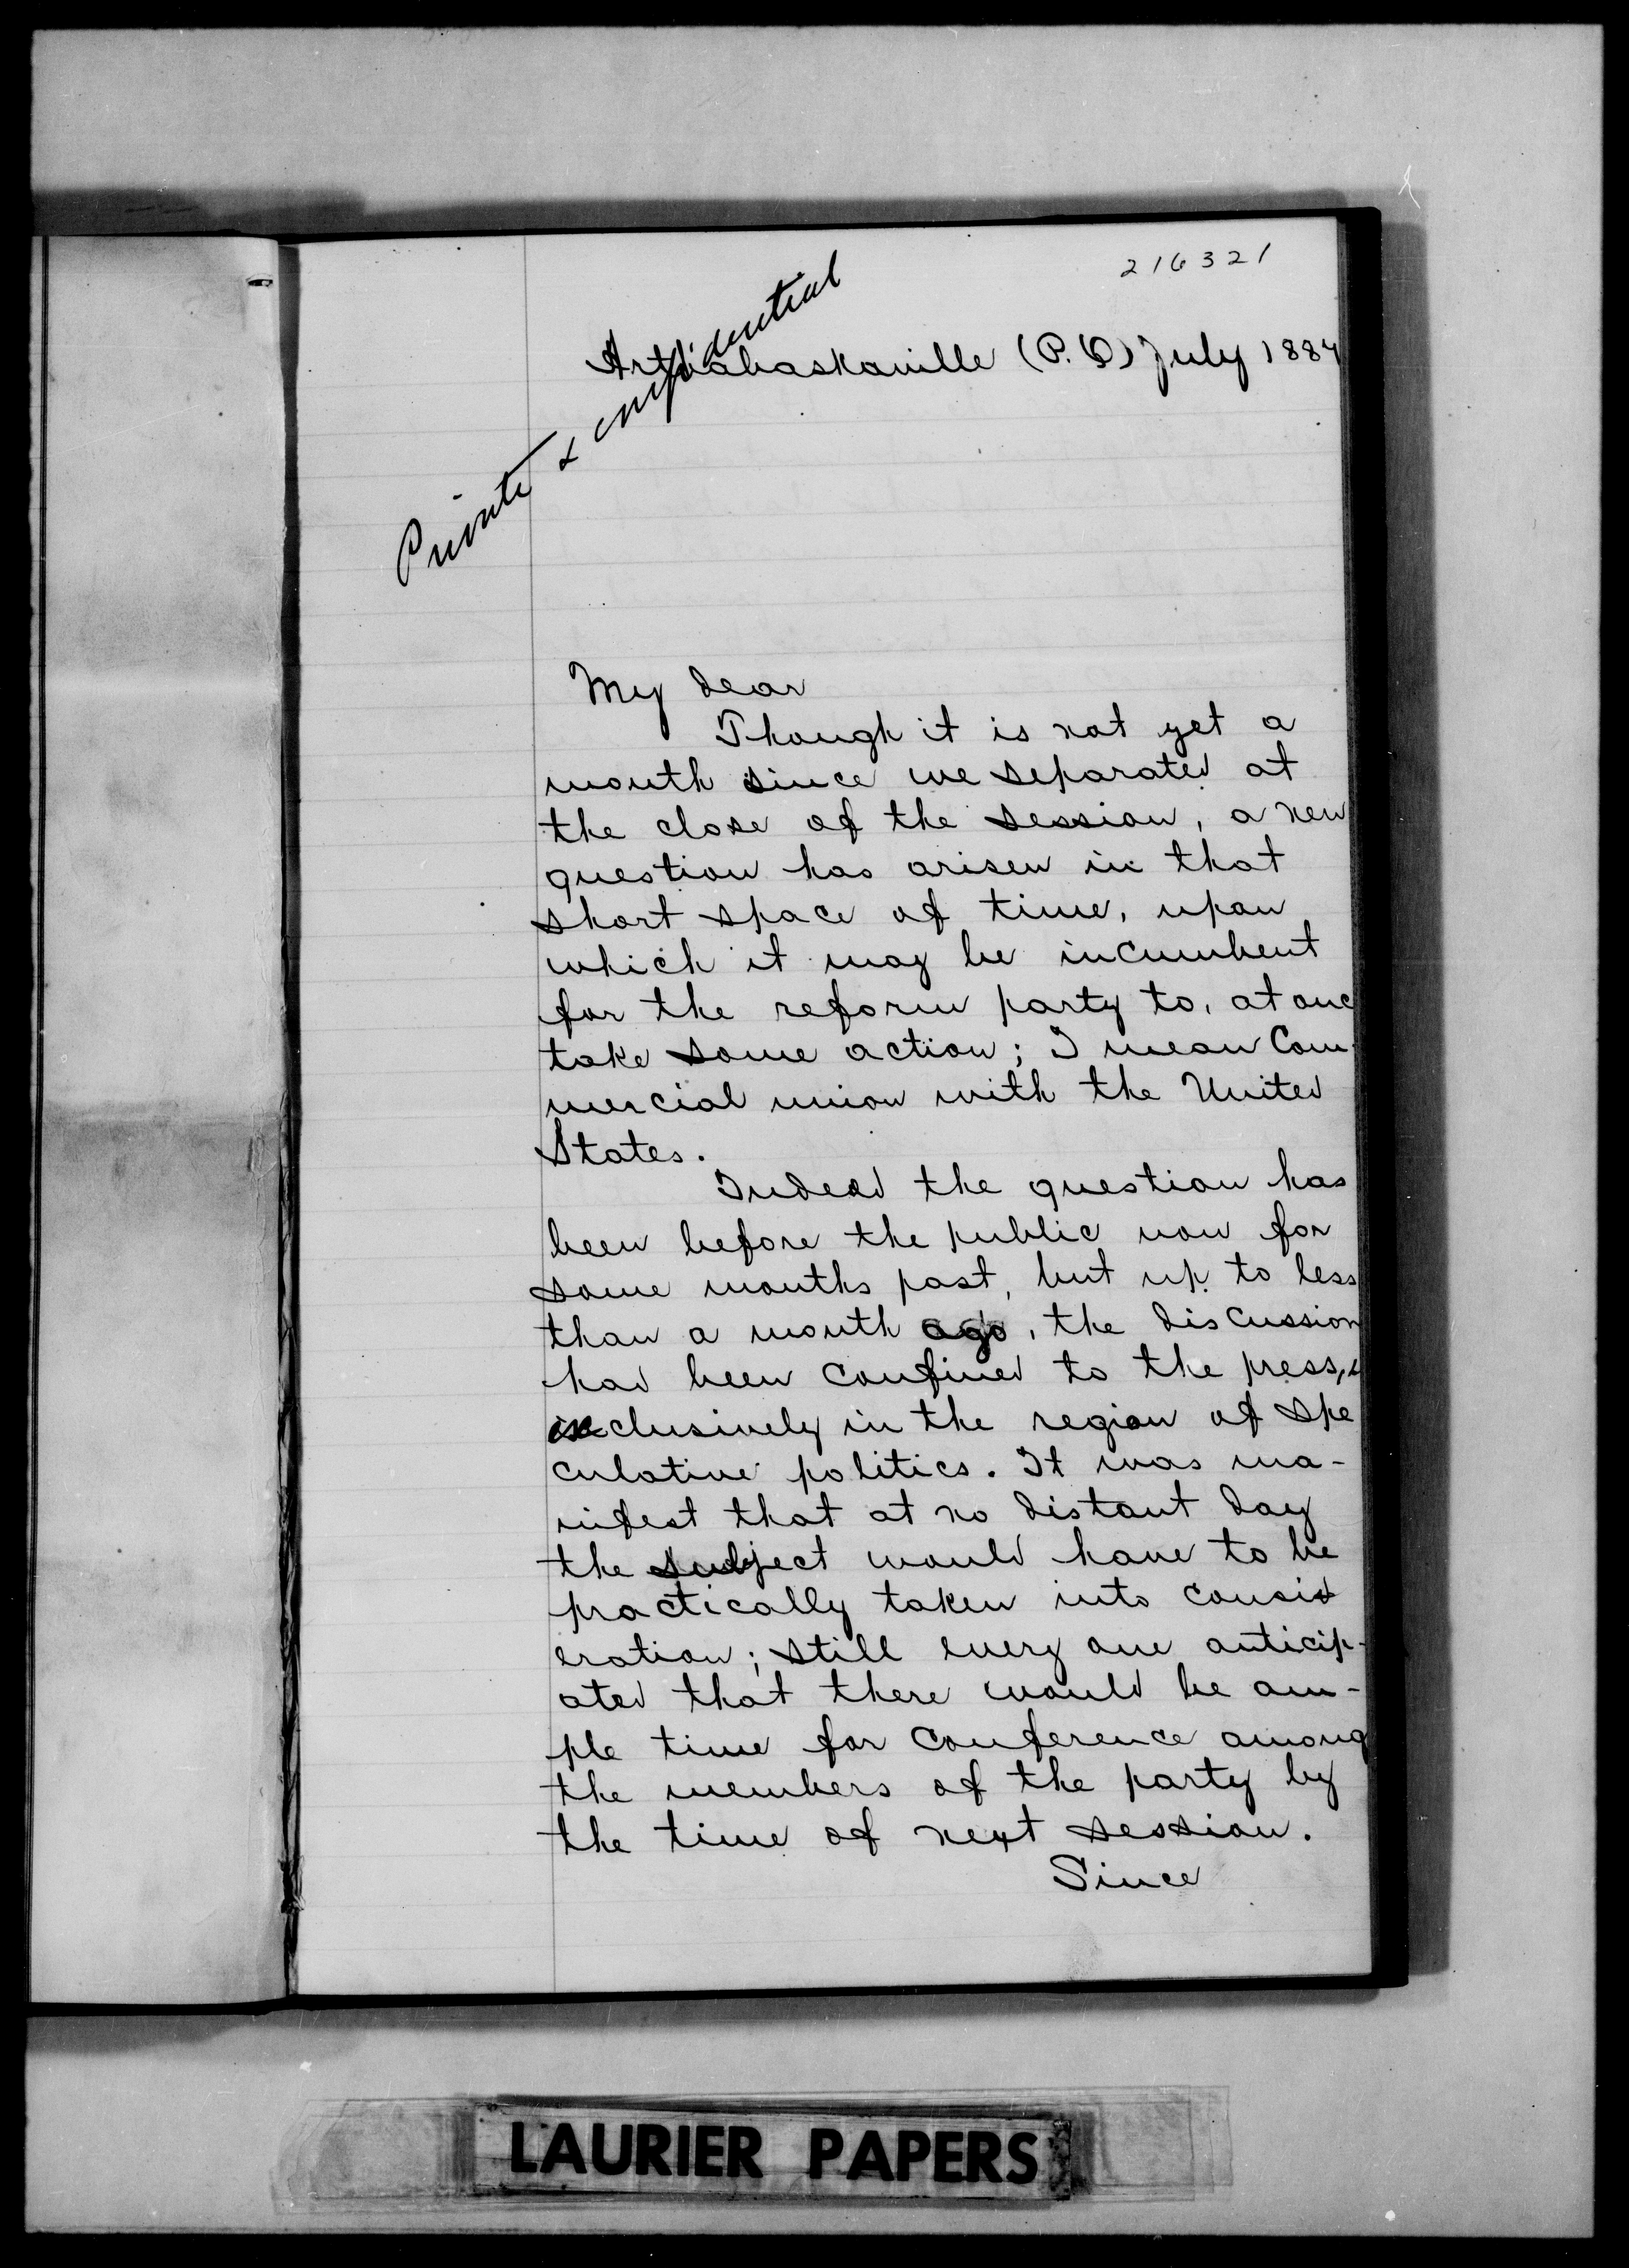 216321
Private & confidential
Arthabaskaville (P.Q) July 1887
My dear
Though it is not yet a
month since we separated at
the close of the session, a new
question has arisen in that
short space of time, upon
which it may be incumbent
for the reform party to, at once
take some action; I mean Com-
mercial union with the United
States.
Indeed the question has
been before the public now for
some months past, but up to less
than a month ago, the discussion
had been confined to the press, &
exclusively in the region of spe
culative politics. It was ma-
nifest that at no distant day
the subject would have to be
practically taken into consid
eration; still every one anticip-
ated that there would be am-
ple time for conference among
the members of the party by
the time of next session.
Since
LAURIER PAPERS